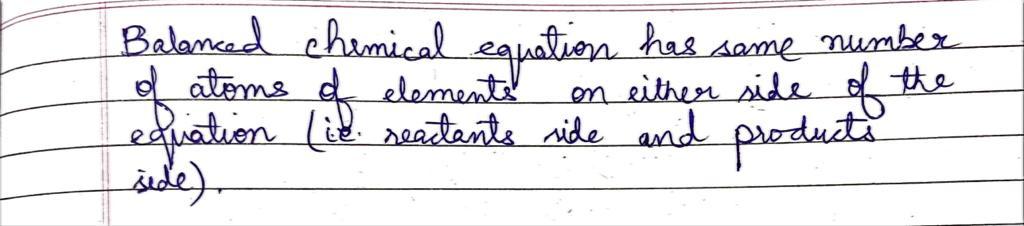 Balanced chemical equation has same number
of atoms of elements on either side of the
equation (i.e. reactants side and products
side).